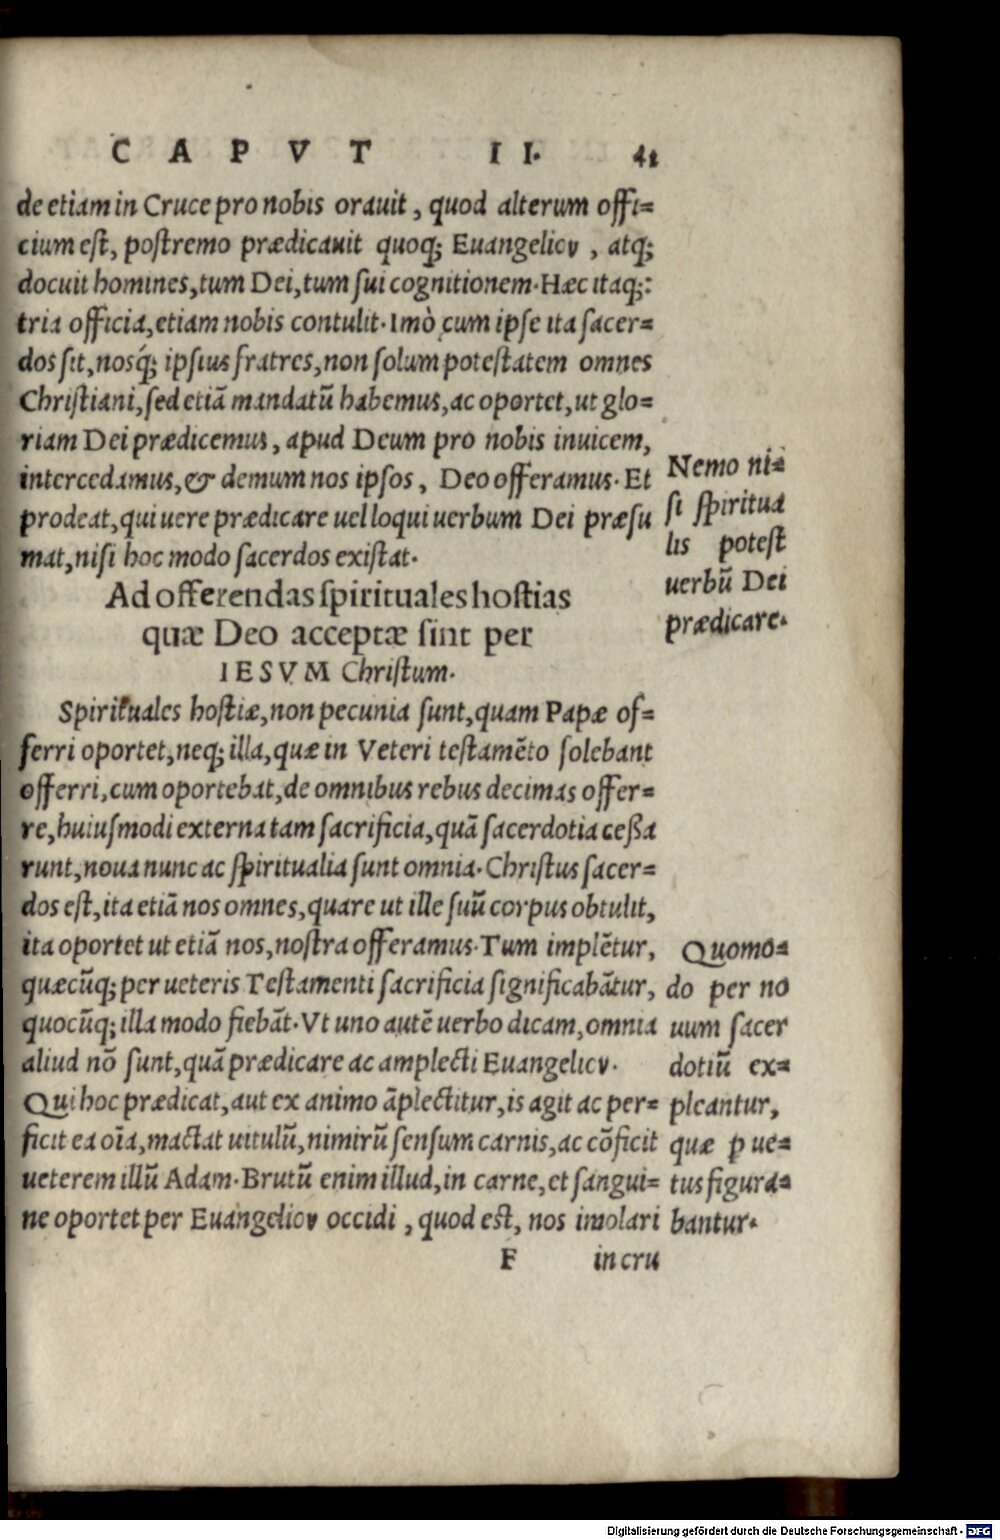 CAPVT II. 41
de etiam in Cruce pro nobis orauit, quod alterum offi=
cium est, postremo prædicauit quoq; Euangelicv, atq;
docuit homines, tum Dei, tum sui cognitionem. Hæc itaq;:
tria officia, etiam nobis contulit. Imò cum ipse ita sacer=
dos sit, nosq́; ipsius fratres, non solum potestatem omnes
Christiani, sed etiã mandatũ habemus, ac oportet, ut glo=
riam Dei prædicemus, apud Deum pro nobis inuicem,
intercedamus, & demum nos ipsos, Deo offeramus. Et
prodeat, qui uere prædicare uel loqui uerbum Dei præsu
mat, nisi hoc modo sacerdos existat.
Nemo ni=
si spiritua
lis potest
uerbũ Dei
prædicare.
Ad offerendas spirituales hostias
quæ Deo acceptæ sint per
IESVM Christum.
Spirituales hostiæ, non pecunia sunt, quam Papæ of=
ferri oportet, neq; illa, quæ in Veteri testamẽto solebant
offerri, cum oportebat, de omnibus rebus decimas offer=
re, huiusmodi externa tam sacrificia, quã sacerdotia ceßa
runt, noua nunc ac spiritualia sunt omnia. Christus sacer=
dos est, ita etiã nos omnes, quare ut ille suũ corpus obtulit,
ita oportet ut etiã nos, nostra offeramus. Tum implẽtur,
quæcũq; per ueteris Testamenti sacrificia significabãtur,
quocũq; illa modo fiebãt. Vt uno autẽ uerbo dicam, omnia
aliud nõ sunt, quã prædicare ac amplecti Euangelicv.
Qui hoc prædicat, aut ex animo ãplectitur, is agit ac per=
ficit ea oĩa, mactat uitulũ, nimirũ sensum carnis, ac cõficit
ueterem illũ Adam. Brutũ enim illud, in carne, et sangui=
ne oportet per Euangelicv occidi, quod est, nos imolari
Quomo=
do per no
uum sacer
dotiũ ex=
pleantur,
quæ p ue=
tus figura=
bantur.
F in cru
Digitalisierung gefördert durch die Deutsche Forschungsgemeinschaft - DFG